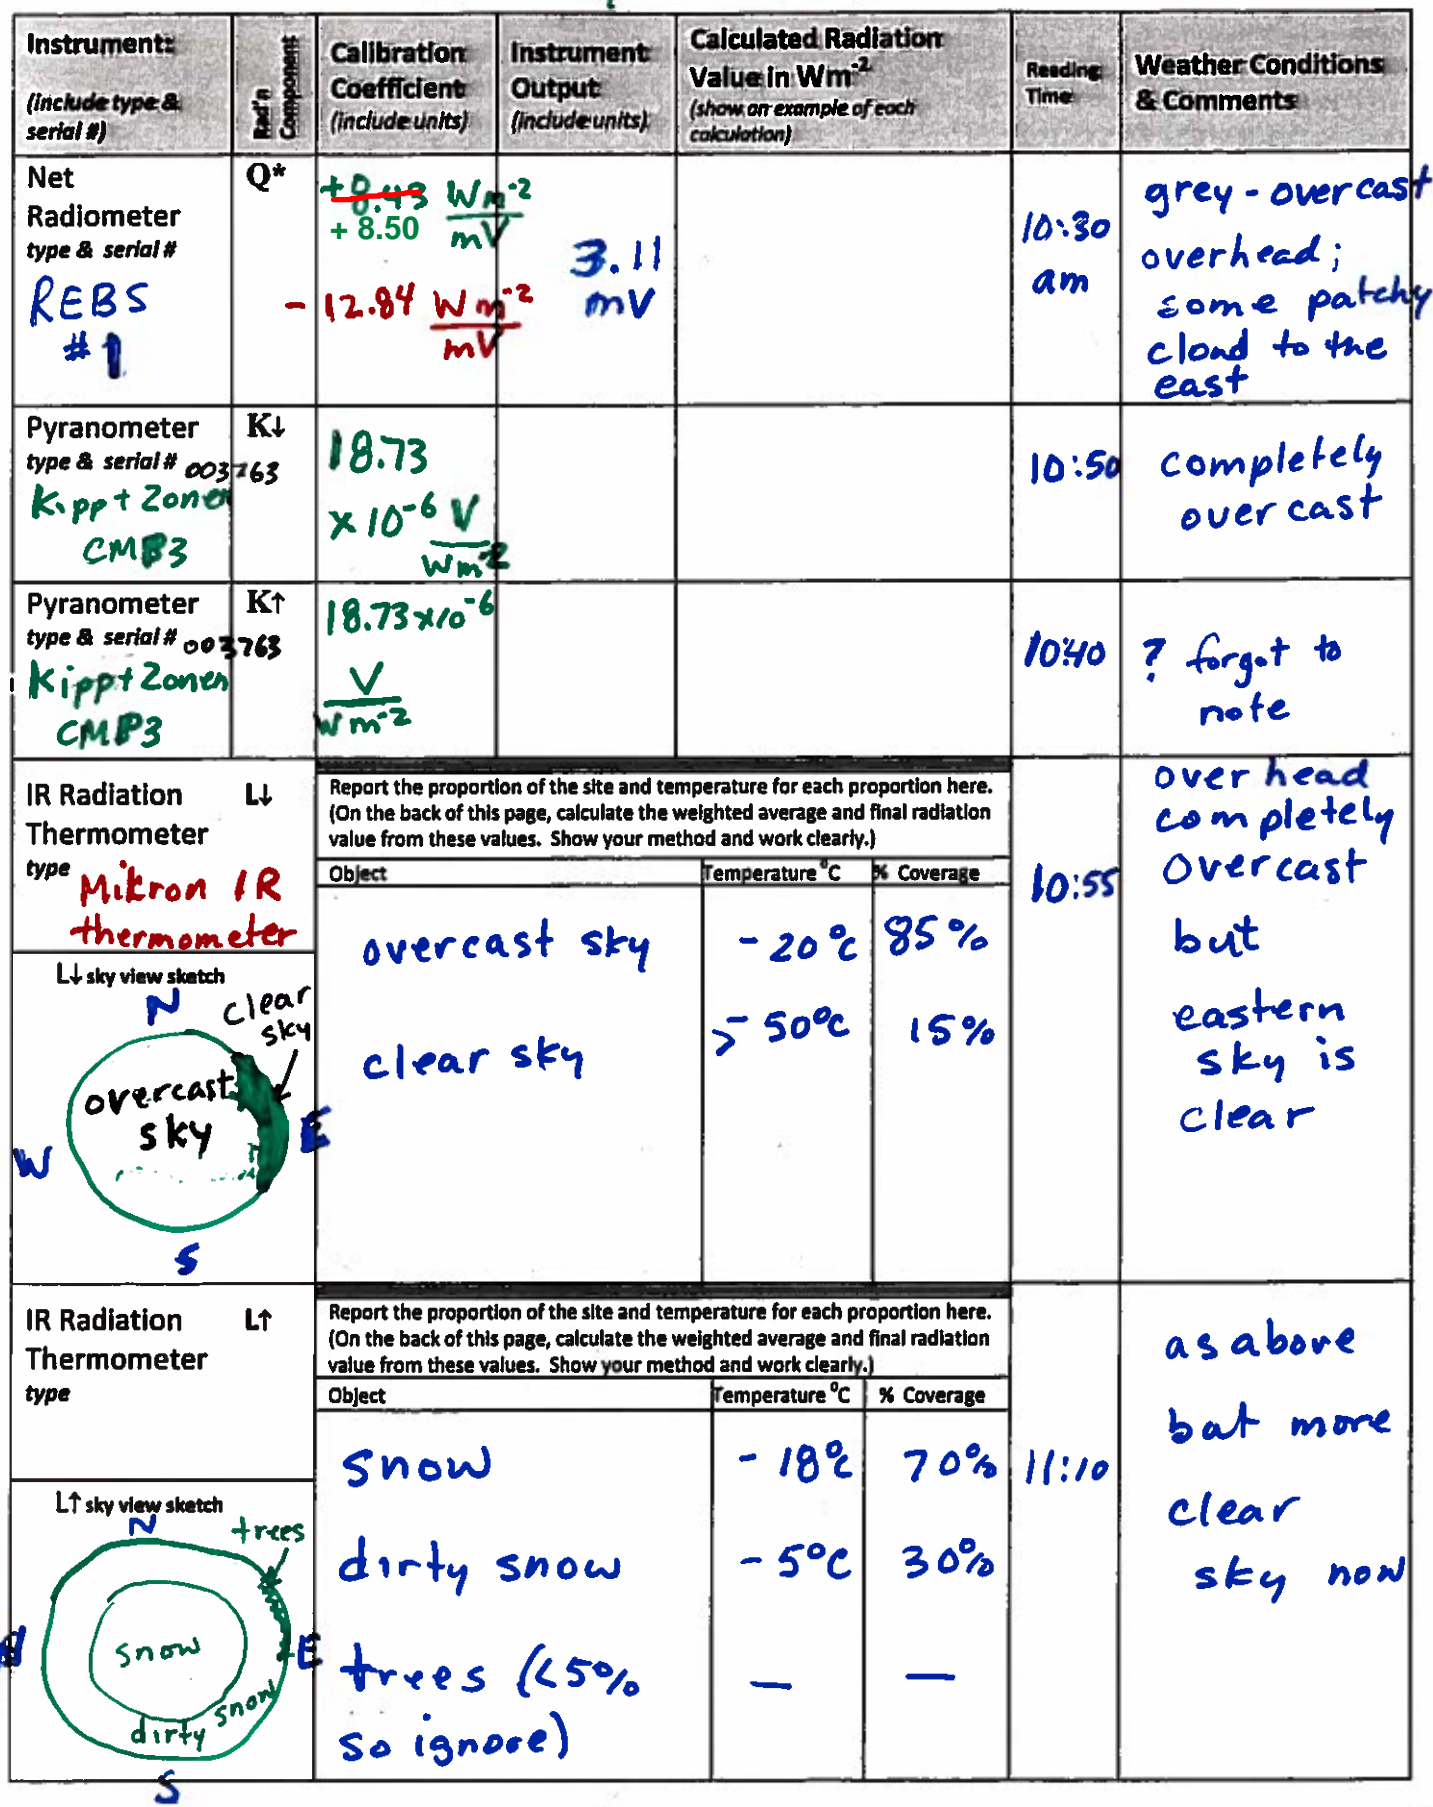 Instrument:
(include type &
serial #)
Rad'n
Component
Calibration
Coefficient
(include units)
Instrument
Output
(include units)
Calculated Radiation
Value in Wm-2
(show an example of each
calculation)
Reading
Time
Weather Conditions
& Comments
Net
Radiometer
type & serial #
REBS
#1
Q*
+8.43 Wm-2
+ 8.50 mV
- 12.84 Wm-2
mV
3.11
mV
10:30
am
grey - overcast
overhead;
some patchy
cloud to the
east
Pyranometer
type & serial # 003763
Kipp + Zonen
CMP3
K↓
18.73
x 10-6 V
Wm-2
10:50
completely
overcast
Pyranometer
type & serial # 003763
Kipp + Zonen
CMP3
K↑
18.73 x 10-6
V
Wm-2
10:40
? forgot to
note
IR Radiation
Thermometer
type Mikron IR
thermometer
L↓
Report the proportion of the site and temperature for each proportion here.
(On the back of this page, calculate the weighted average and final radiation
value from these values. Show your method and work clearly.)
Object Temperature °C % Coverage
overcast sky -20°C 85%
clear sky >-50°C 15%
10:55
over head
completely
overcast
but
eastern
sky is
clear
L↓ sky view sketch
N
clear
sky
overcast
sky
E
W
S
IR Radiation
Thermometer
type
L↑
Report the proportion of the site and temperature for each proportion here.
(On the back of this page, calculate the weighted average and final radiation
value from these values. Show your method and work clearly.)
Object Temperature °C % Coverage
snow -18°C 70%
dirty snow -5°C 30%
trees (<5% — —
so ignore)
11:10
as above
but more
clear
sky now
L↑ sky view sketch
N
trees
snow
W
E
dirty snow
S